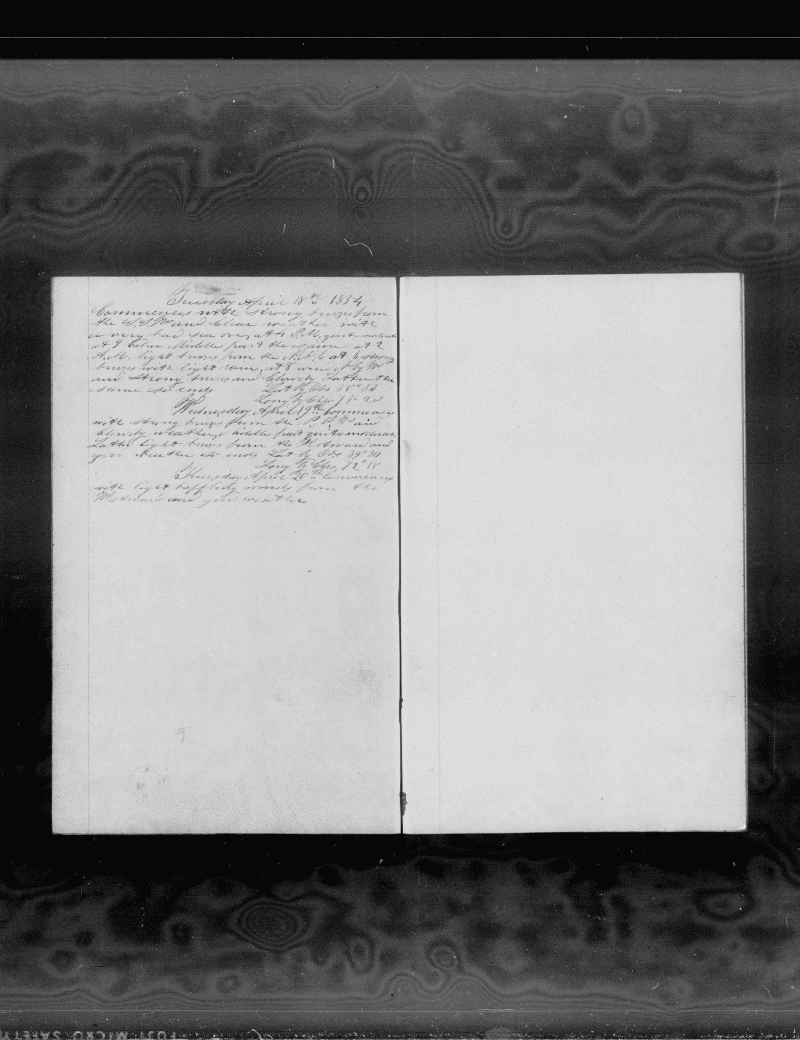 Tuesday April 18th 1854
Commences with strong breezes from
the S.S.W and clear weather with
a very bad sea over, at 4 P.M. quite moderate
at 9 Calm Middle part the same at 2
A.M. light breeses from the N.N.E at 6 strong
breeses with light rain, at 8 wind N by W
and strong breeses and Cloudy Latter the
same so ends Lat by Obs 38"
Long by Chro 75" 20
Wednesday April 19th Commences
with strong breeses from the and
cloudy weather, middle part quite moderate
Latter light breses from the Westward and
good weather so ends Lat by Obs 39"
Long by Chro 72" 18
Thursday April 20th Commences
with light baffling winds from the
Westward and good weather
FUJI MICRO SAFETY